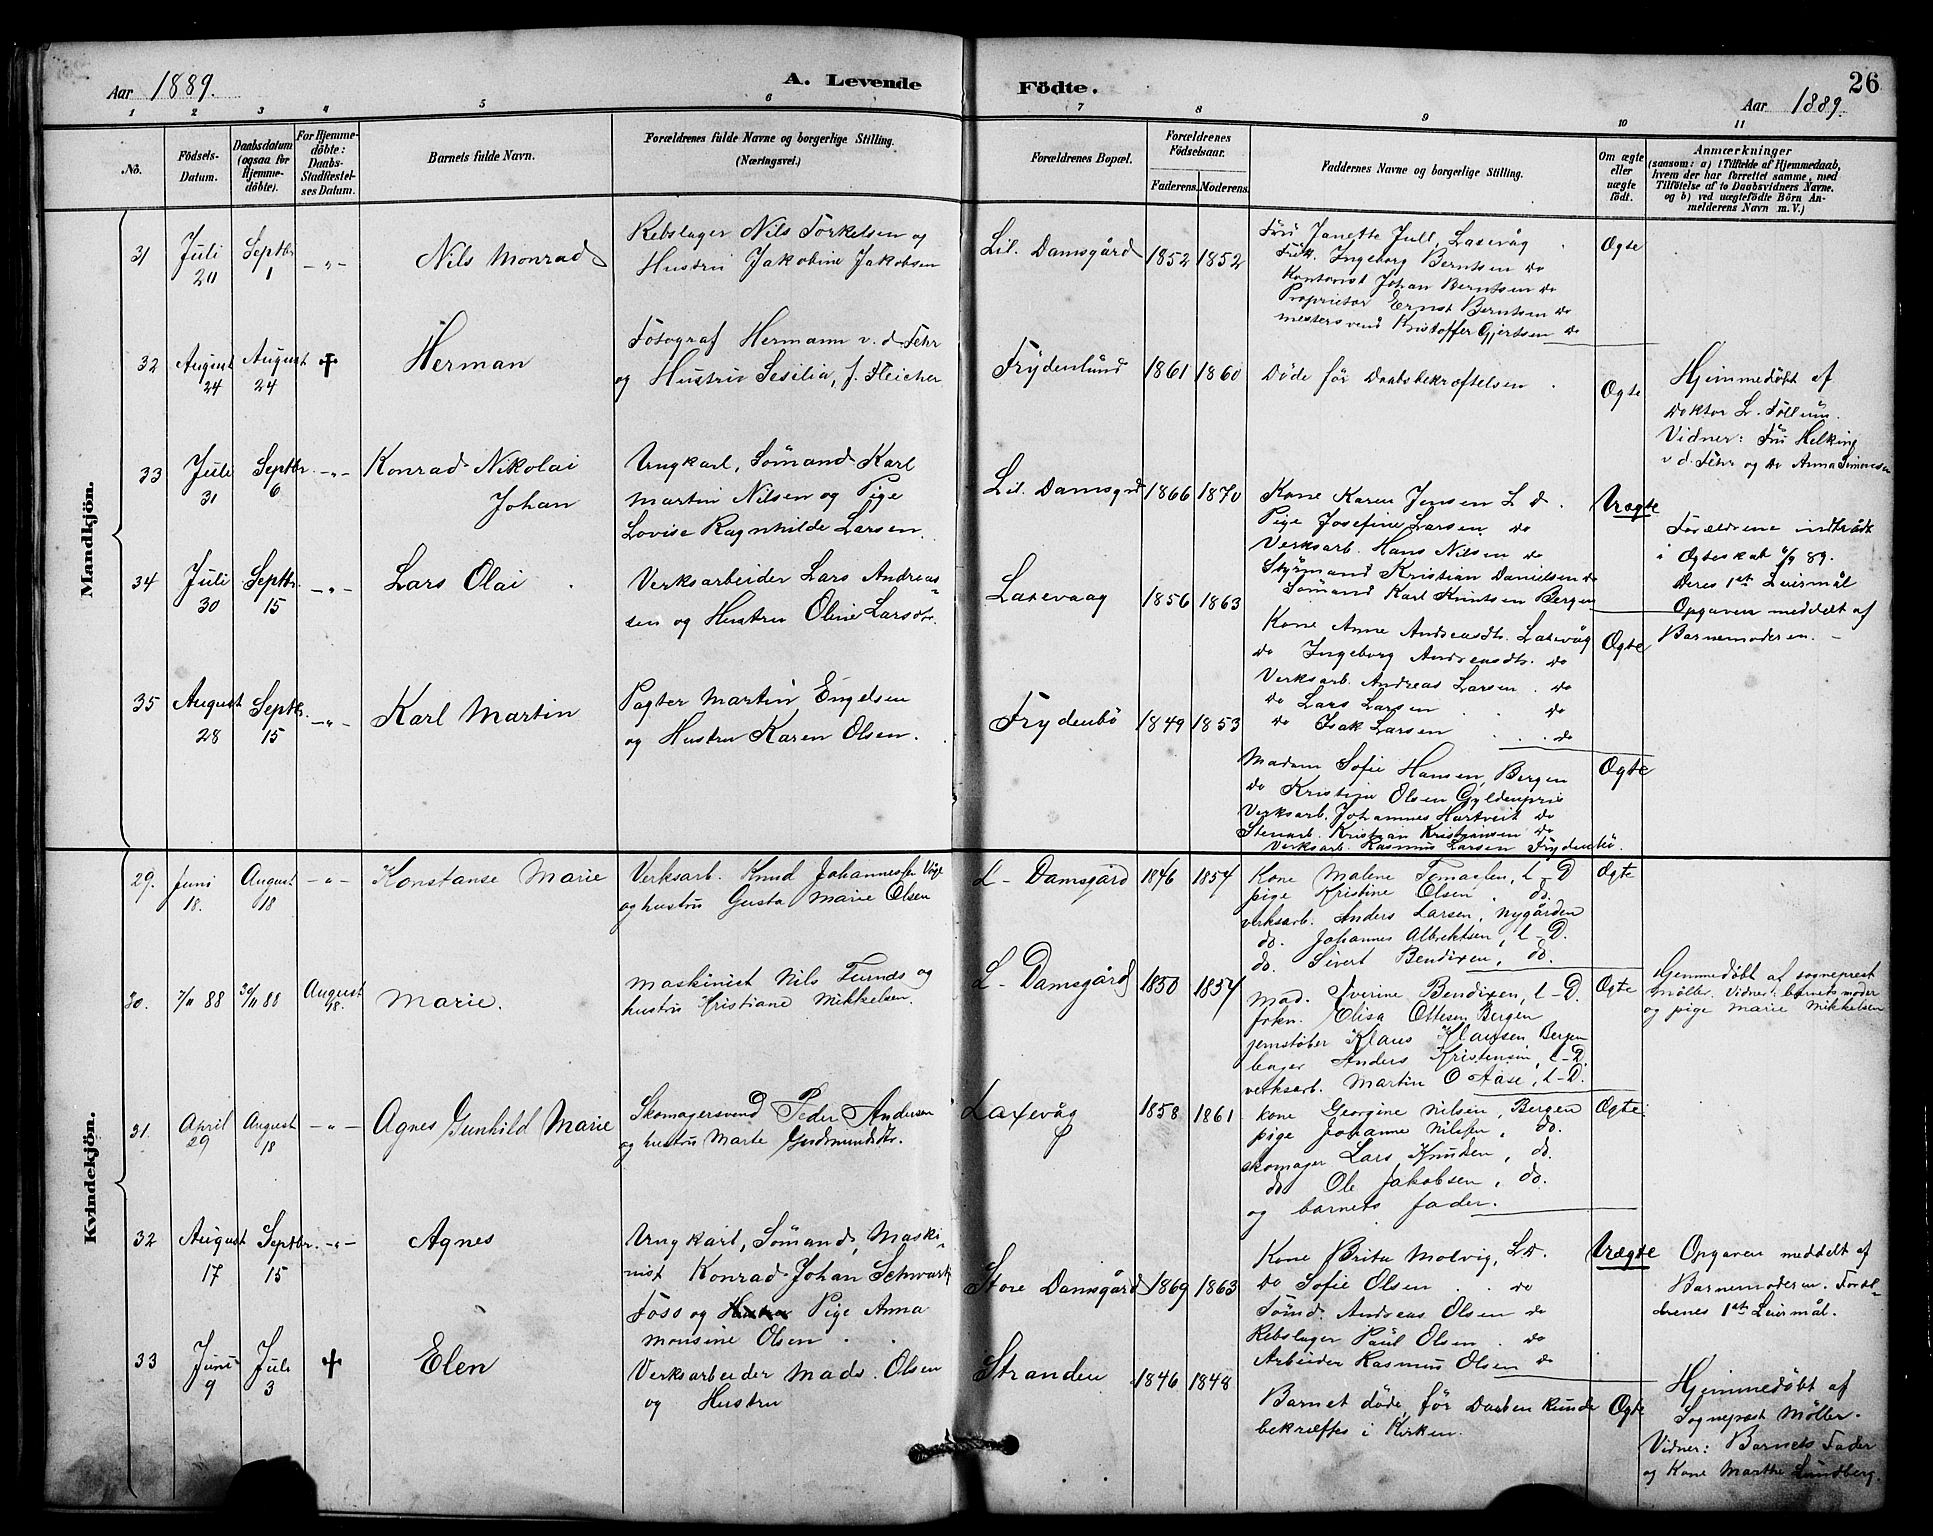 Aar 1889.
A. Levende Födte.
26
Aar 1889.
1 2 3 4 5 6 7 8 9 10 11
No.
Födsels-
Datum.
Daabsdatum
(ogsaa for
Hjemme-
döbte).
For Hjemme-
döbte:
Daabs-
Stadfæstel-
ses Datum.
Barnets fulde Navn.
Forældrenes fulde Navne og borgerlige Stilling.
(Næringsvei.)
Forældrenes Bopæl.
Forældrenes
Födselsaar.
Faderens. Moderens.
Faddernes Navne og borgerlige Stilling.
Om ægte
eller
uægte
født.
Anmærkninger
(saasom: a) i Tilfælde af Hjemmedaab,
hvem der har forrettet samme, med
Tilføielse af to Daabsvidners Navne.
og b) ved uægtefødte Börn An-
melderens Navn m. V.)
Mandkjön.
31
Juli
20
Septbr
1
-„-
Nils Monrad
Rebslager Nils Torkelsen og
Hustru Jakobine Jakobsen
Lil. Damsgård
1852 1852
Fru Janette Jull, Laxevåg
Frk. Ingeborg Berntsen do
Kontorist Johan Berntsen do
Proprietør Ernst Berntsen do
mestersvend Kristoffer Gjertsen do
Ægte
32
August
24
August
24
✝
Herman
Fotograf Hermann v. d. Fehr
og Hustru Sesilia, f. Fleicher
Frydenlund
1861 1860
Døde før Daabsbekræftelsen
Ægte
Hjemmedøbt af
Doktor L.
Vidner: Fru
v. d. Fehr og do Anna Simonsen
33
Juli
31
Septbr
6
-„-
Konrad Nikolai
Johan
Ungkarl, Sømand Karl
Martin Nilsen og Pige
Lovise Ragnhilde Larsen.
Lil. Damsgrd
1866 1870
Kone Karen Jensen L D.
Pige Josefine Larsen do
Verksarb. Hans Nilsen do
Styrmand Kristian Danielsen do
Sømand Karl Knutsen Bergen
Uægte
Forældrene indtråd
i Ægteskab 6/9 89.
Deres 1ste Leiermål
Opgaven meddelt af
Barnemoderen.
34
Juli
30
Septbr.
15
-„-
Lars Olai
Verksarbeider Lars Andreas-
sen og Hustru Oline Larsdtr.
Laxevaag
1856 1863
Kone Anne Andreasdtr. Laxevåg
do Ingeborg Andreasdtr. do
Verksarb. Andreas Larsen do
do Lars Larsen do
do Isak Larsen do
Ægte
35
August
28
Septbr.
15
-„-
Karl Martin
Pagter Martin Engelsen
og Hustru Karen Olsen.
Frydenbø
1849 1853
Madam Sofie Hansen, Bergen
do Kristine Olsen Gyldenpris
Verksarb. Johannes Hartveit do
Stenarb. Kristian Kristiansen do
Verksarb. Rasmus Larsen Frydenbø.
Ægte
Kvindekjön.
29.
Juni
18.
August
18
-„-
Konstanse Marie
Verksarb. Knud Johannessen
og hustru Gusta Marie Olsen
L- Damsgård
1846 1854
Kone Malene L-D
pige Kristine Olsen, do.
verksarb. Anders Larsen, Nygården
do. Johannes Albrektsen, L-D.
do. Sivert Bendixen, do.
Ægte
30.
7/11 88
30/11 88
August
18.
Marie.
Maskinist Nils og
hustru Kristiane Mikkelsen.
L- Damsgård
1850 1857
Mad. Iverine Bendixen, L-D.
frkn. Elisa Ottesen Bergen
jernstøber Klaus Klausen, Bergen
bager Anders Kristensen, L-D.
verksarb. Martin O Aase, L-D.
Ægte
Hjemmedøbt af sogneprest
Møller. Vidner: barnets moder
og pige Marie Mikkelsen
31.
April
29
August
18
-„-
Agnes Gunhild Marie
Skomagersvend Peder Andersen
og hustru Marte Gudmundsdtr.
Laxevåg
1858 1861
Kone Georgine Nilsen, Bergen
pige Johanne Nilsen, do.
skomager Lars Knudsen, do.
do Ole Jakobsen, do.
og barnets fader.
Ægte
32
August
17
Septbr.
15
-„-
Agnes
Ungkarl, Sømand, Maski-
nist Konrad Johan Schwartz
Foss og Pige Anna
Monsine Olsen
Store Damsgård
1869 1863
Kone Brita Molvig, L D.
do Sofie Olsen do
Tømd. Andreas Olsen do
Rebslager Paul Olsen do
Arbeider Rasmus Olsen do
Uægte
Opgaven meddelt af
Barnemoderen. Foræl-
drenes 1ste Leiermål.
33
Juni
9
Juli
3
✝
Elen
Verksarbeider Mads Olsen
og Hustru
Stranden
1846 1848
Barnet døde, før Daaben kunde
bekræftes i Kirken.
Ægte
Hjemmedøbt af
Sogneprest Møller.
Vidner: Barnets Fader
og Kone Marthe Lundberg.